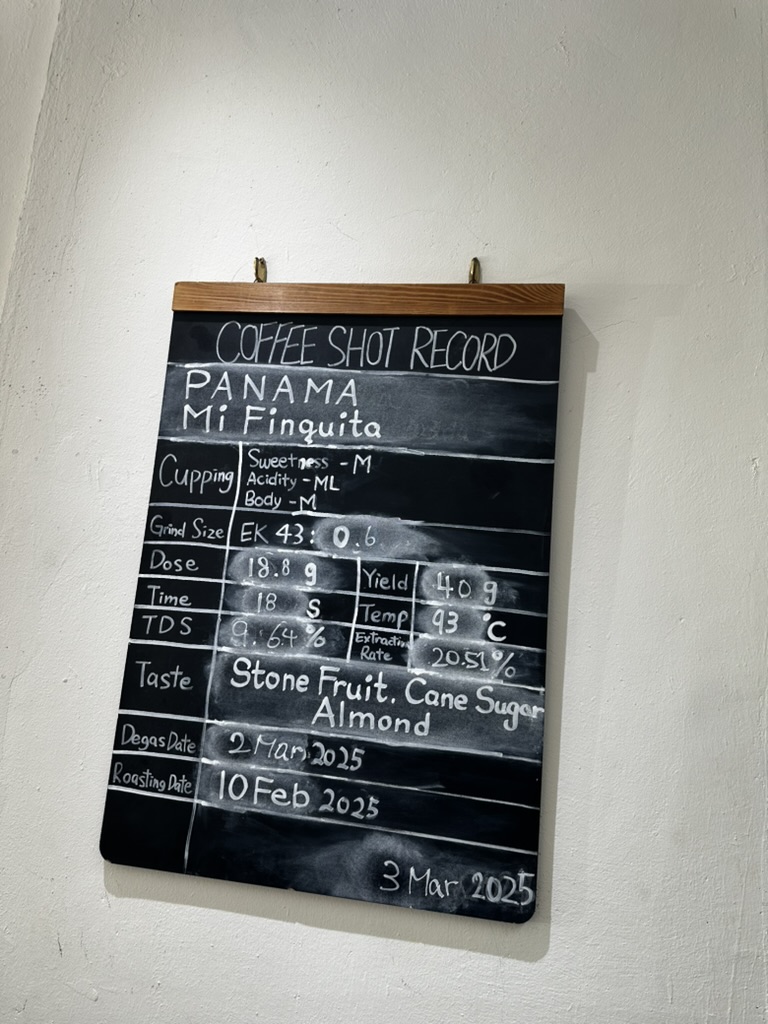 COFFEE SHOT RECORD
PANAMA
Mi Finquita
Cupping
Sweetness - M
Acidity - ML
Body - M
Grind Size EK 43: 0.6
Dose 18.8 g Yield 40 g
Time 18 s Temp 93 °C
TDS 9.64% Extraction Rate 20.51%
Taste Stone Fruit. Cane Sugar
Almond
Degas Date 2 Mar 2025
Roasting Date 10 Feb 2025
3 Mar 2025